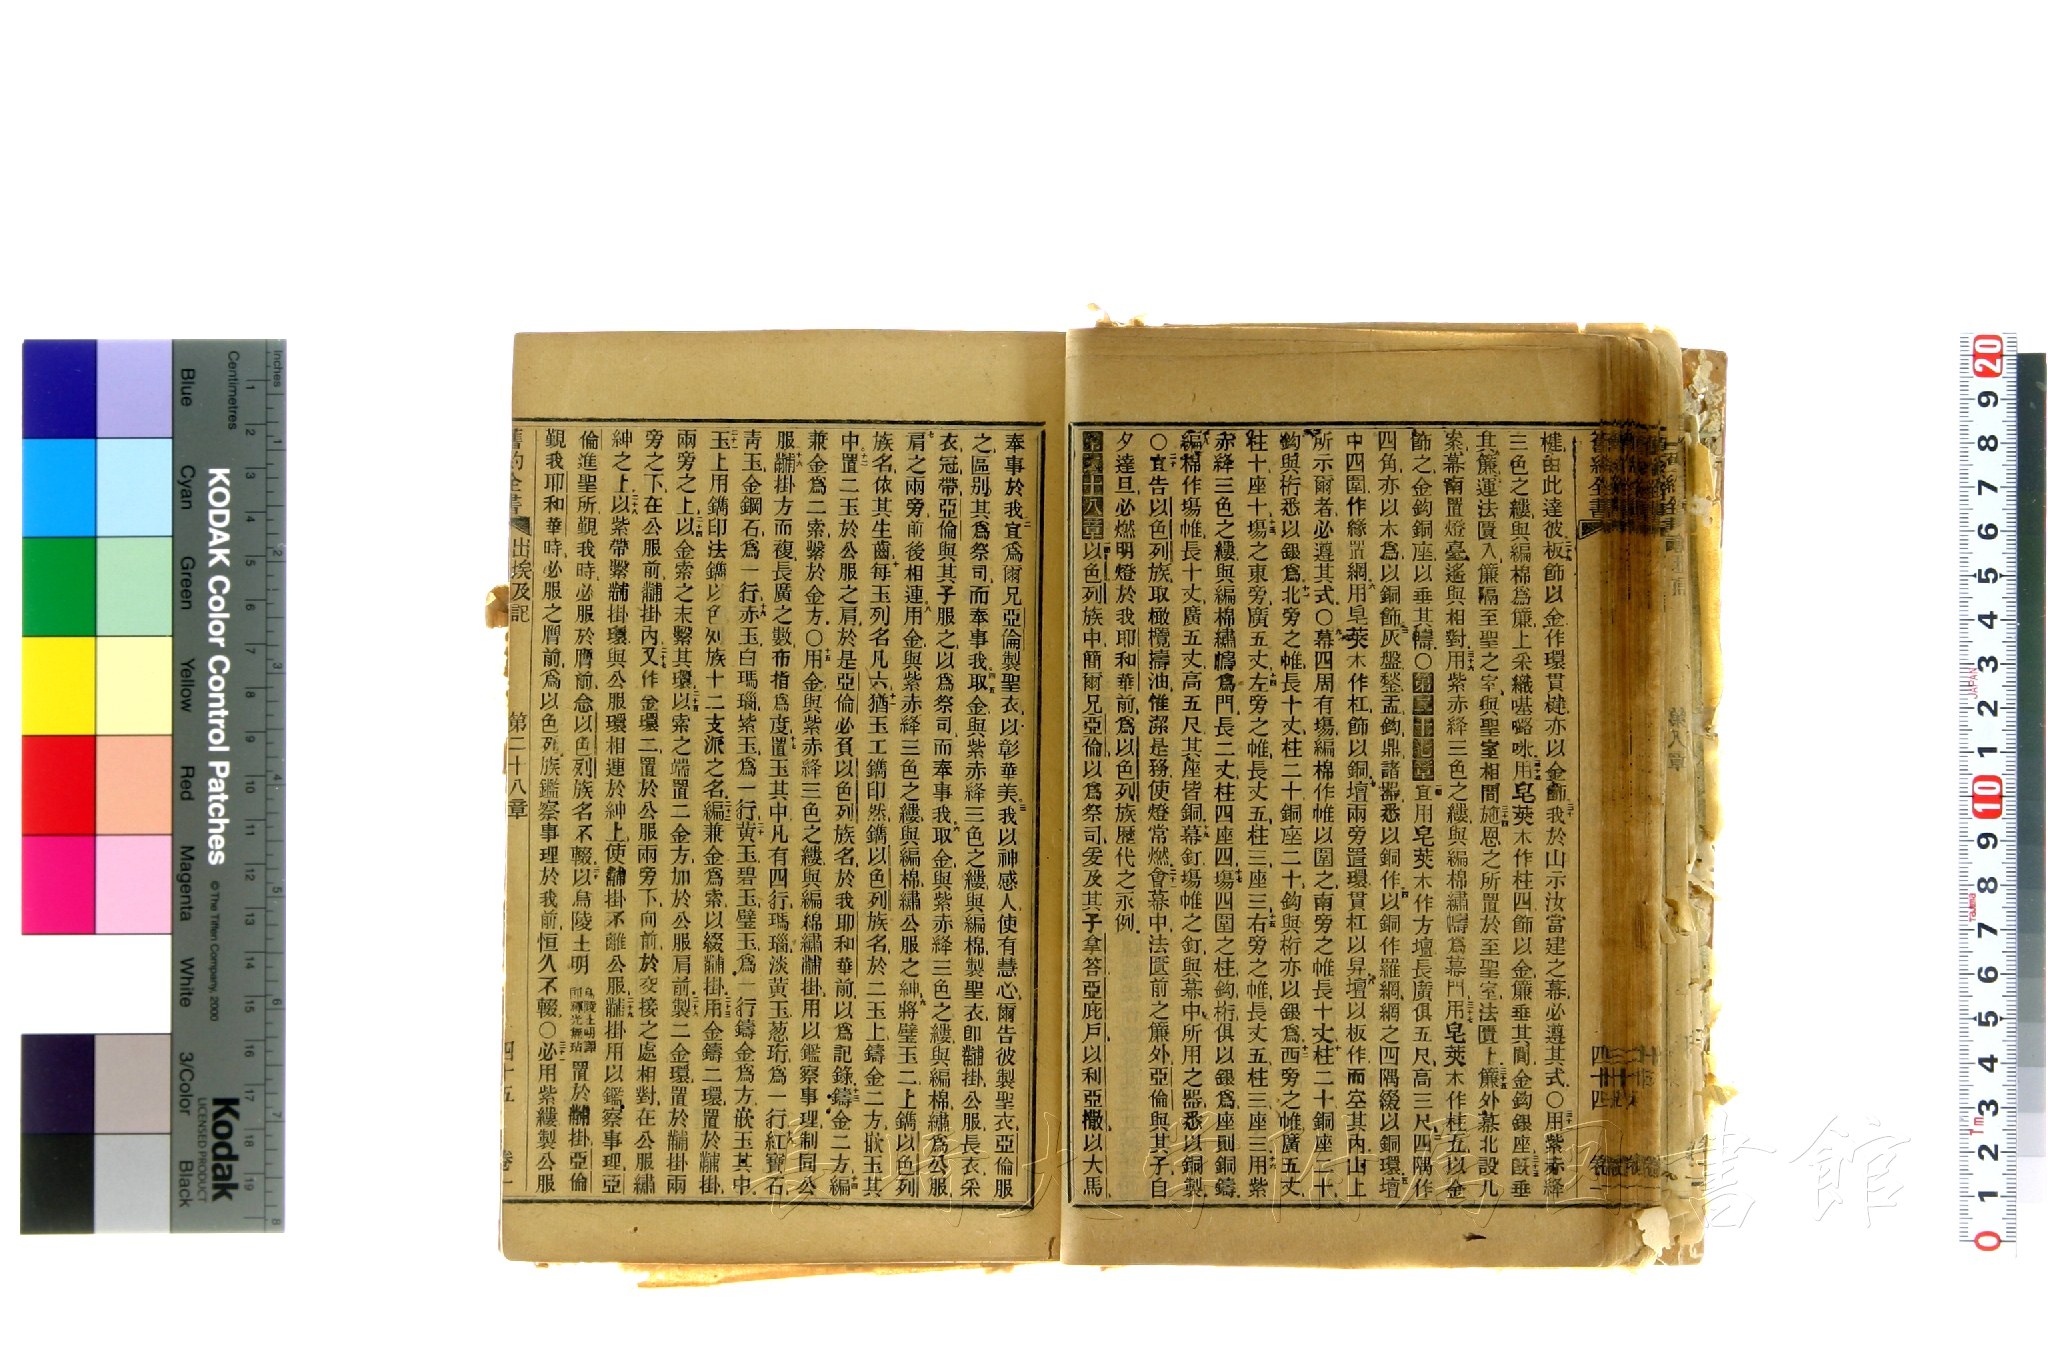 楗由此達彼板飾以金作環貫楗亦以金飾我於山示汝當建之幕必遵其式〇用紫赤絳
三色之縷與編棉爲簾上采織𠼻𡀔㕸用皂莢木作柱四飾以金簾垂其間金鈎銀座旣垂
其簾運法匱入簾隔至聖之室與聖室相間施恩之所置於至聖室法匱上簾外幕北設几
案幕南置燈臺遙與相對用紫赤絳三色之縷與編棉繡幬爲幕門用皂莢木作柱五以金
飾之金鈎銅座以垂其幬〇第二十七章宜用皂莢木作方壇長廣俱五尺高三尺四隅作
四角亦以木爲以銅飾灰盤鍫盂鈎鼎諸器悉以銅作以銅作羅網網之四隅綴以銅環壇
中四圍作緣置網用皂莢木作杠飾以銅壇兩旁置環貫杠以舁壇以板作而空其內山上
所示爾者必遵其式〇幕四周有場編棉作帷以圍之南旁之帷長十丈柱二十銅座二十
鈎與桁悉以銀爲北旁之帷長十丈柱二十銅座二十鈎與桁亦以銀爲西旁之帷廣五丈
柱十座十場之東旁廣五丈左旁之帷長丈五柱三座三右旁之帷長丈五柱三座三用紫
赤絳三色之縷與編棉繡幬爲門長二丈柱四座四場四圍之柱鈎桁俱以銀爲座則銅鑄
編棉作場帷長十丈廣五丈高五尺其座皆銅幕釘場帷之釘與幕中所用之器悉以銅製
〇宜告以色列族取橄欖擣油惟潔是務使燈常燃會幕中法匱前之簾外亞倫與其子自
夕達旦必燃明燈於我耶和華前爲以色列族歷代之永例
第二十八章以色列族中簡爾兄亞倫以爲祭司爰及其子拿答亞庇戶以利亞撒以大馬
四十四
奉事於我宜爲爾兄亞倫製聖衣以彰華美我以神感人使有慧心爾告彼製聖衣亞倫服
之區別其爲祭司而奉事我取金與紫赤絳三色之縷與編棉製聖衣卽黼掛公服長衣采
衣冠帶亞倫與其子服之以爲祭司而奉事我取金與紫赤絳三色之縷與編棉繡爲公服
肩之兩旁前後相連用金與紫赤絳三色之縷與編棉繡公服之紳將璧玉二上鐫以色列
族名依其生齒每玉列名凡六猶玉工鐫印然鐫以色列族名於二玉上鑄金二方嵌玉其
中置二玉於公服之肩於是亞倫必負以色列族名於我耶和華前以爲記錄鑄金二方編
兼金爲二索繫於金方〇用金與紫赤絳三色之縷與編綿繡黼掛用以鑑察事理制同公
服黼掛方而複長廣之數布指爲度置玉其中凡有四行瑪瑙淡黃玉葱珩爲一行紅寶石
靑玉金鋼石爲一行赤玉白瑪瑙紫玉爲一行黃玉碧玉璧玉爲一行鑄金爲方嵌玉其中
玉上用鐫印法鐫以色列族十二支派之名編兼金爲索以綴黼掛用金鑄二環置於黼掛
兩旁之上以金索之末繫其環以索之端置二金方加於公服肩前製二金環置於黼掛兩
旁之下在公服前黼掛內又作金環二置於公服兩旁下向前於交接之處相對在公服繡
紳之上以紫帶繫黼掛環與公服環相連於紳上使黼掛不離公服黼掛用以鑑察事理亞
倫進聖所覲我時必服於膺前念以色列族名不輟以烏陵土明置於黼掛亞倫
覲我耶和華時必服之膺前爲以色列族鑑察事理於我前恒久不輟〇必用紫縷製公服
舊約全書 出埃及記 第二十八章 四十五 卷一
KODAK Color Control Patches
© The Tiffen Company, 2000
Kodak
LICENSED PRODUCT
Inches
Centimetres
Blue
Cyan
Green
Yellow
Red
Magenta
White
3/Color
Black
長崎大学附属図書館